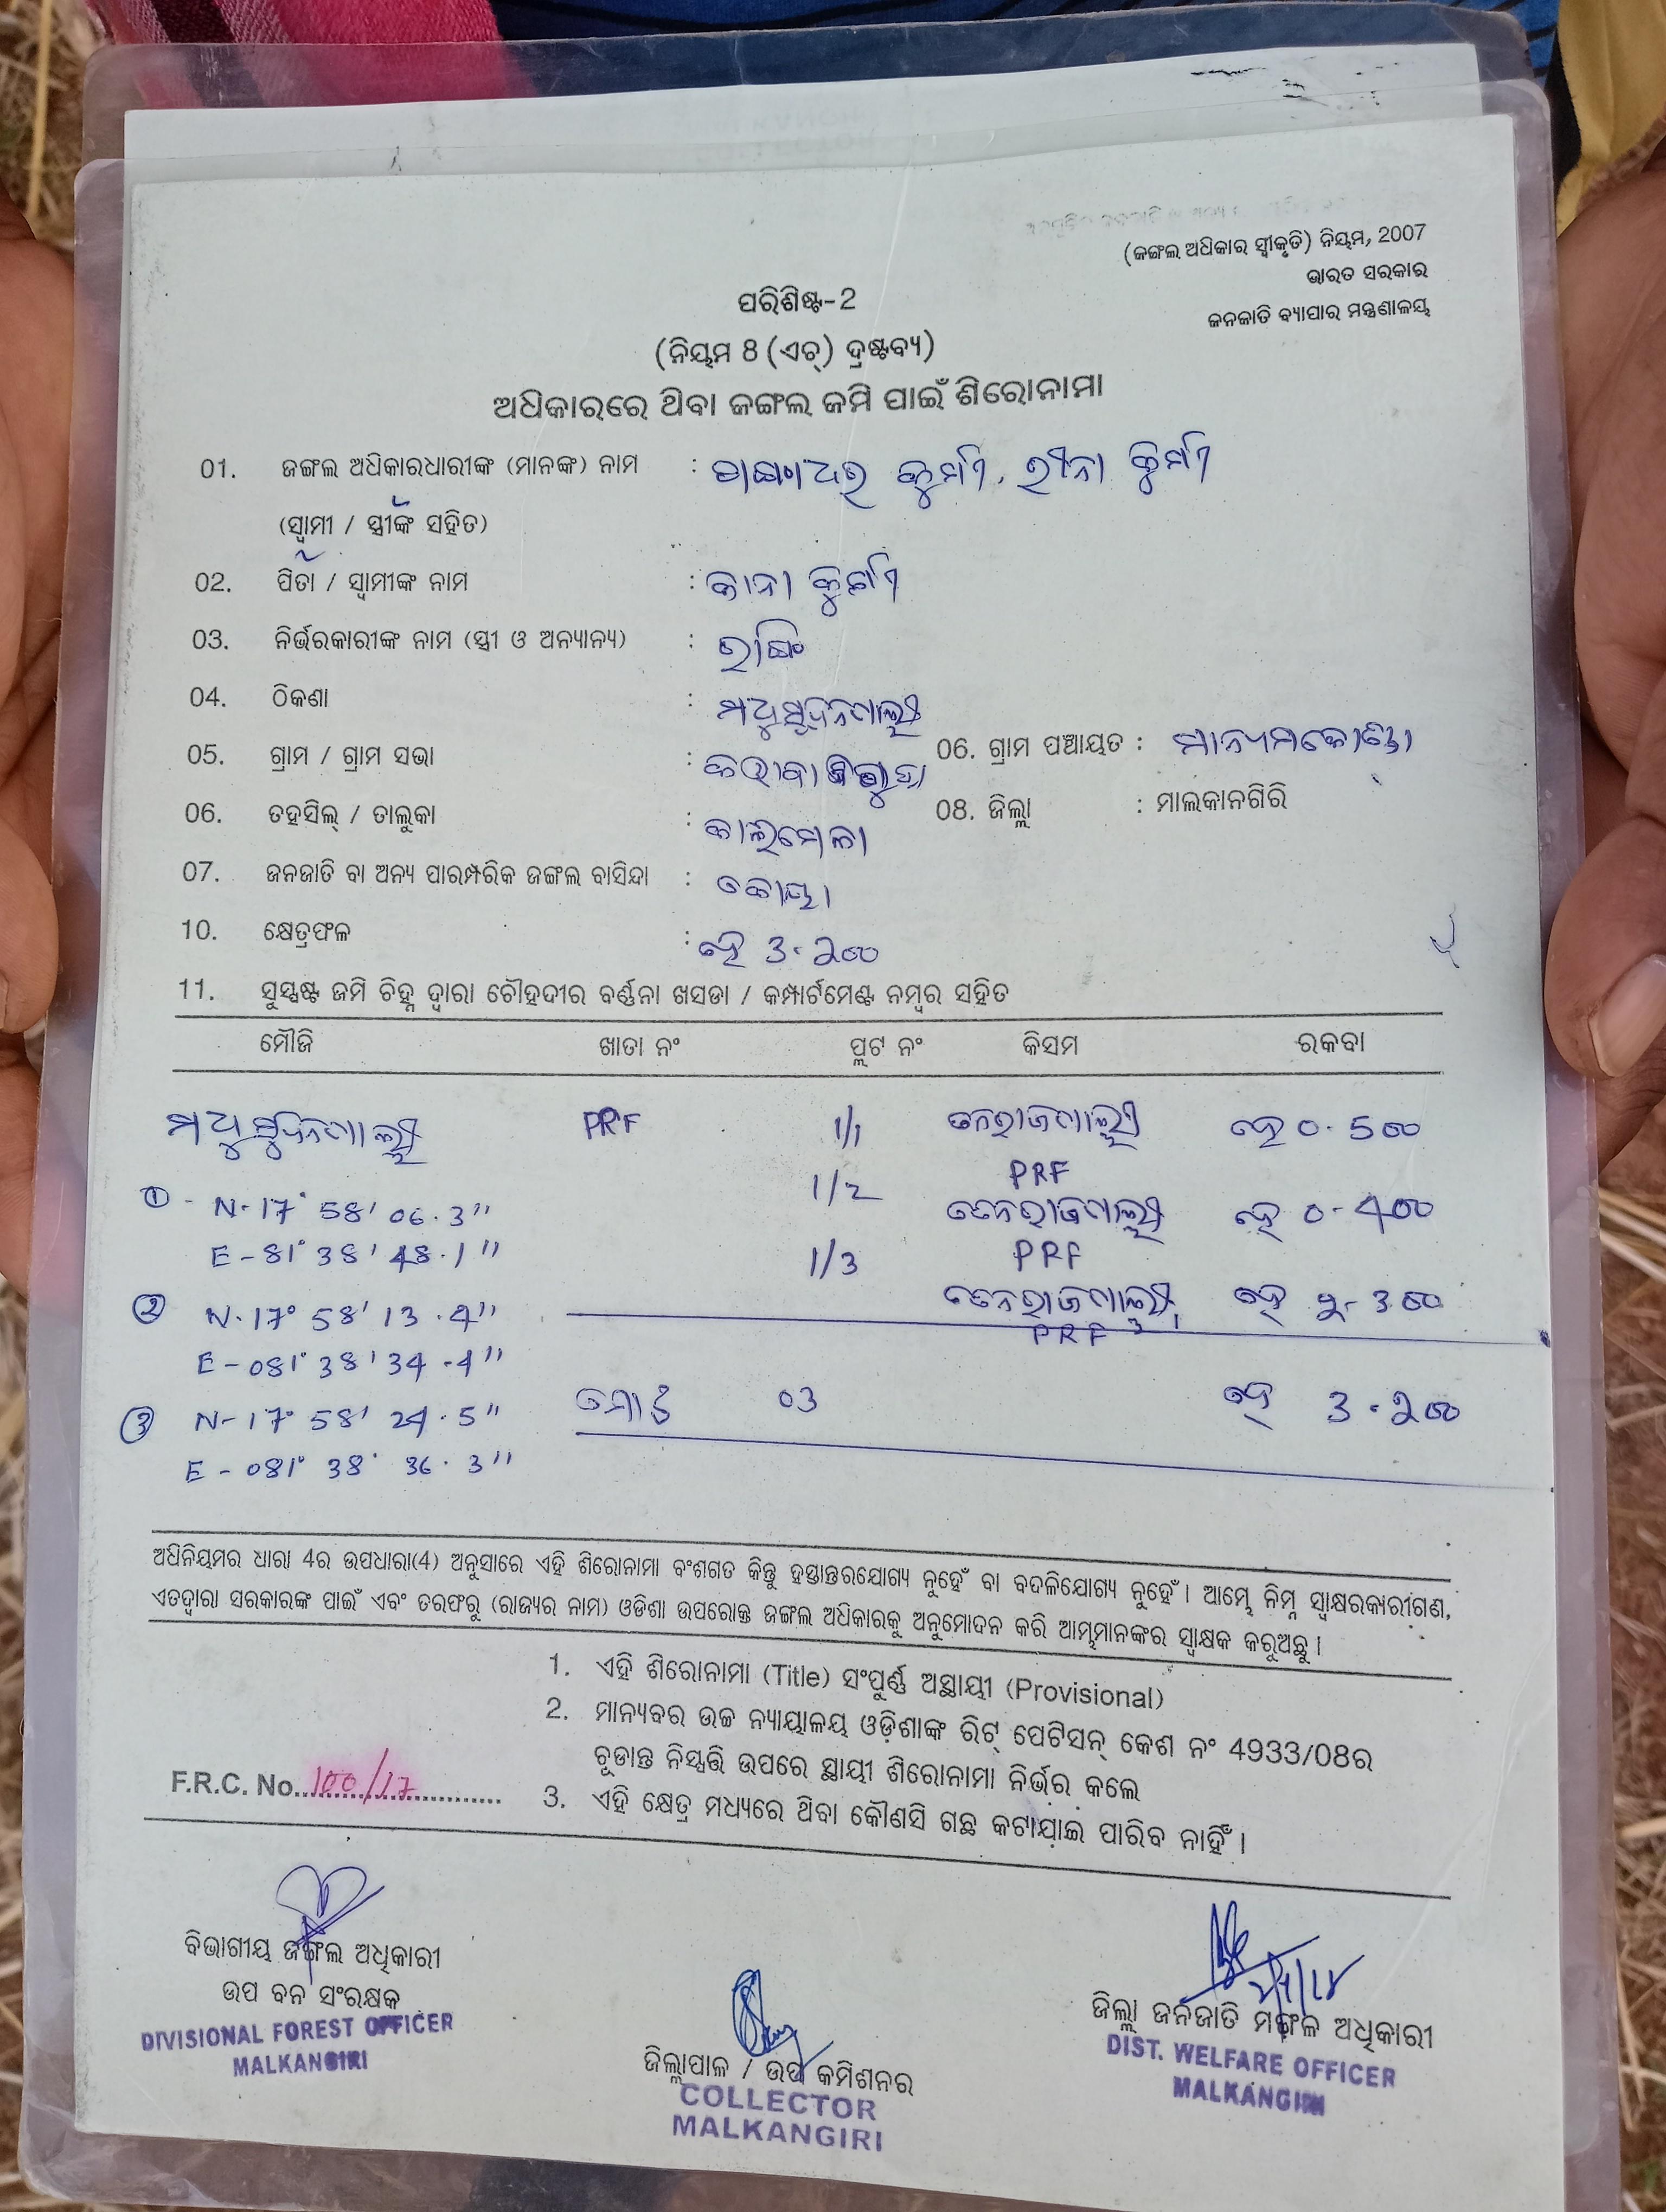 (ଜଙ୍ଗଲ ଅଧିକାର ସ୍ୱୀକୃତି) ନିୟମ, 2007
ଭାରତ ସରକାର
ଜନଜାତି ବ୍ୟାପାର ମନ୍ତ୍ରଣାଳୟ
ପରିଶିଷ୍ଟ-2
(ନିୟମ 8 (ଏଚ୍) ଦ୍ରଷ୍ଟବ୍ୟ)
ଅଧିକାରରେ ଥିବା ଜଙ୍ଗଲ ଜମି ପାଇଁ ଶିରୋନାମା
01. ଜଙ୍ଗଲ ଅଧିକାରଧାରୀଙ୍କ (ମାନଙ୍କ) ନାମ :
(ସ୍ୱାମୀ / ସ୍ତ୍ରୀଙ୍କ ସହିତ)
02. ପିତା / ସ୍ୱାମୀଙ୍କ ନାମ :
03. ନିର୍ଭରକାରୀଙ୍କ ନାମ (ସ୍ତ୍ରୀ ଓ ଅନ୍ୟାନ୍ୟ) :
04. ଠିକଣା :
05. ଗ୍ରାମ / ଗ୍ରାମ ସଭା : 06. ଗ୍ରାମ ପଞ୍ଚାୟତ : ମାନ୍ୟମକୋଣ୍ଡା
06. ତହସିଲ୍ / ତାଲୁକା : କାଲିମେଳା 08. ଜିଲ୍ଲା : ମାଲକାନଗିରି
07. ଜନଜାତି ବା ଅନ୍ୟ ପାରମ୍ପରିକ ଜଙ୍ଗଲ ବାସିନ୍ଦା : କୋୟା
10. କ୍ଷେତ୍ରଫଳ : ହେ 3.200
11. ସୁସ୍ପଷ୍ଟ ଜମି ଚିହ୍ନ ଦ୍ୱାରା ଚୌହଦୀର ବର୍ଣ୍ଣନା ଖସଡା / କମ୍ପାର୍ଟମେଣ୍ଟ ନମ୍ବର ସହିତ
ମୌଜି ଖାତା ନଂ ପ୍ଲଟ ନଂ କିସମ ରକବା
PRF 1/1 ହେ 0.500
PRF
① - N-17° 58' 06.3" 1/2 ହେ 0-400
E-81° 38' 48.1" 1/3 PRF
② N-17° 58' 13.4" ହେ 2-300
PRF
E-081° 38' 34.4"
③ N-17° 58' 24.5" ମୋଟ 03 ହେ 3.200
E-081° 38' 36.3"
ଅଧିନିୟମର ଧାରା 4ର ଉପଧାରା(4) ଅନୁସାରେ ଏହି ଶିରୋନାମା ବଂଶଗତ କିନ୍ତୁ ହସ୍ତାନ୍ତରଯୋଗ୍ୟ ନୁହେଁ ବା ବଦଳିଯୋଗ୍ୟ ନୁହେଁ । ଆମ୍ଭେ ନିମ୍ନ ସ୍ୱାକ୍ଷରକାରୀଗଣ,
ଏତଦ୍ୱାରା ସରକାରଙ୍କ ପାଇଁ ଏବଂ ତରଫରୁ (ରାଜ୍ୟର ନାମ) ଓଡିଶା ଉପରୋକ୍ତ ଜଙ୍ଗଲ ଅଧିକାରକୁ ଅନୁମୋଦନ କରି ଆମ୍ଭମାନଙ୍କର ସ୍ୱାକ୍ଷକ କରୁଅଛୁ ।
1. ଏହି ଶିରୋନାମା (Title) ସଂପୂର୍ଣ୍ଣ ଅସ୍ଥାୟୀ (Provisional)
2. ମାନ୍ୟବର ଉଚ୍ଚ ନ୍ୟାୟାଳୟ ଓଡ଼ିଶାଙ୍କ ରିଟ୍ ପେଟିସନ୍ କେଶ ନଂ 4933/08ର
ଚୂଡାନ୍ତ ନିସ୍ପତ୍ତି ଉପରେ ସ୍ଥାୟୀ ଶିରୋନାମା ନିର୍ଭର କଲେ
F.R.C. No. 100/17
3. ଏହି କ୍ଷେତ୍ର ମଧ୍ୟରେ ଥିବା କୌଣସି ଗଛ କଟାଯାଇ ପାରିବ ନାହିଁ ।
ବିଭାଗୀୟ ଜଙ୍ଗଲ ଅଧିକାରୀ
ଉପ ବନ ସଂରକ୍ଷକ
DIVISIONAL FOREST OFFICER
MALKANGIRI
ଜିଲ୍ଲାପାଳ / ଉପ କମିଶନର
COLLECTOR
MALKANGIRI
ଜିଲ୍ଲା ଜନଜାତି ମଙ୍ଗଳ ଅଧିକାରୀ
DIST. WELFARE OFFICER
MALKANGIRI